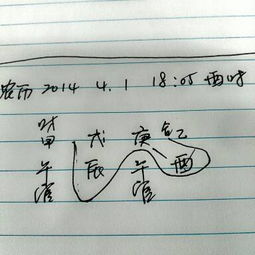 农历 2014 4.1 18:05 酉时
财
甲 戊 庚 乙
午 辰 午 酉